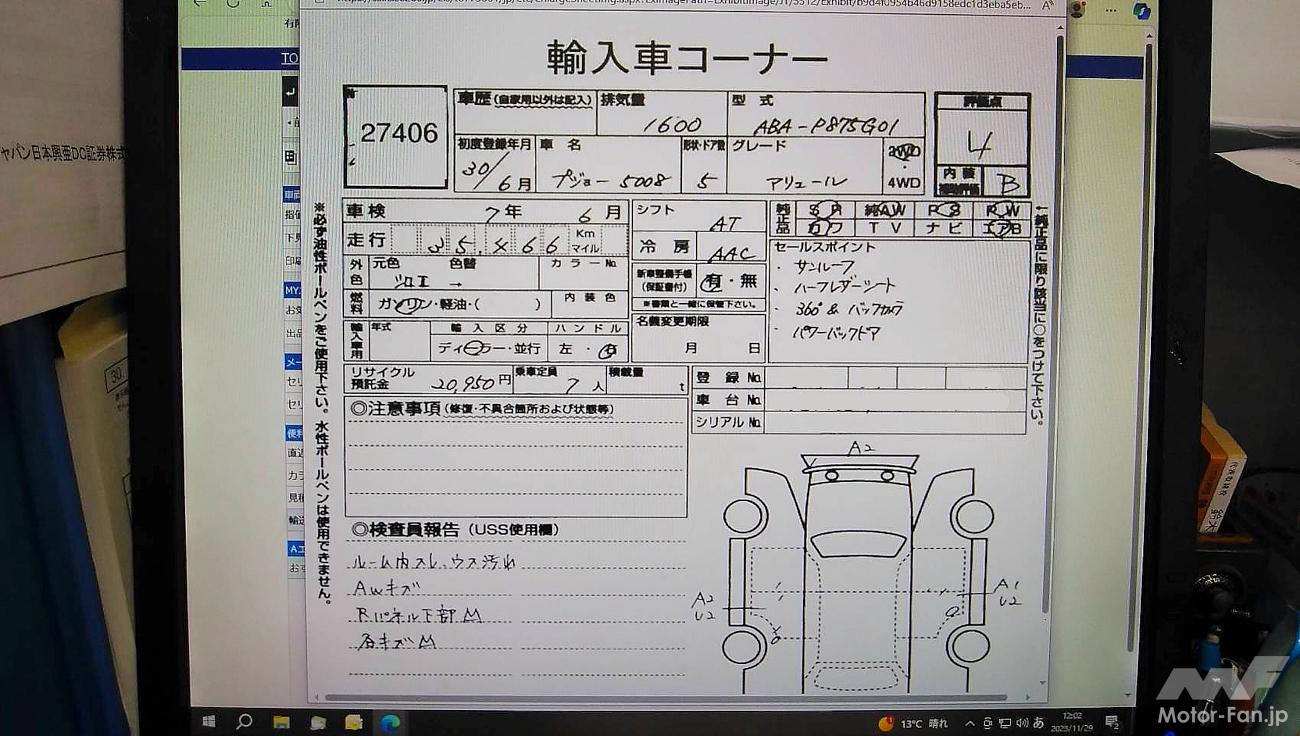 輸入車コーナー
27406
車歴(自家用以外は記入)
排気量
1600
型式
ABA-P875G01
評価点
4
内装
補助評価
B
初度登録年月
30/6月
車名
プジョー 5008
形状・ドア数
5
グレード
アリュール
2WD
4WD
車検
7年 6月
走行
35,466
Km
マイル
シフト
AT
冷房
AAC
純正品
SR
純AW
PS
PW
カワ
TV
ナビ
エアB
外色
元色
シロⅡ
色替
→
カラーNo.
新車整備手帳
(保証書付)
有・無
※書類と一緒に保管下さい。
セールスポイント
・サンルーフ
・ハーフレザーシート
・360°& バックカメラ
・パワーバックドア
燃料
ガソリン・軽油・( )
内装色
名義変更期限
月 日
輸入車用
年式
輸入区分
ディーラー・並行
ハンドル
左・右
リサイクル
預託金
20,950円
乗車定員
7人
積載量
t
登録No.
車台No.
シリアルNo.
◎注意事項(修復・不具合箇所および状態等)
◎検査員報告(USS使用欄)
ルーム内スレ、ウス汚れ
AWキズ
Rパネル下部M
各キズM
A2
A2
U2
A1
U2
※必ず油性ボールペンをご使用下さい。水性ボールペンは使用できません。
←純正品に限り該当に○をつけて下さい。
ャパン日本興亜DC証券株式
TO
MY
13℃ 晴れ
あ
12:02
2023/11/29
MF
Motor-Fan.jp